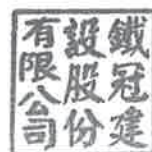 鐵冠建
設股份
有限公司